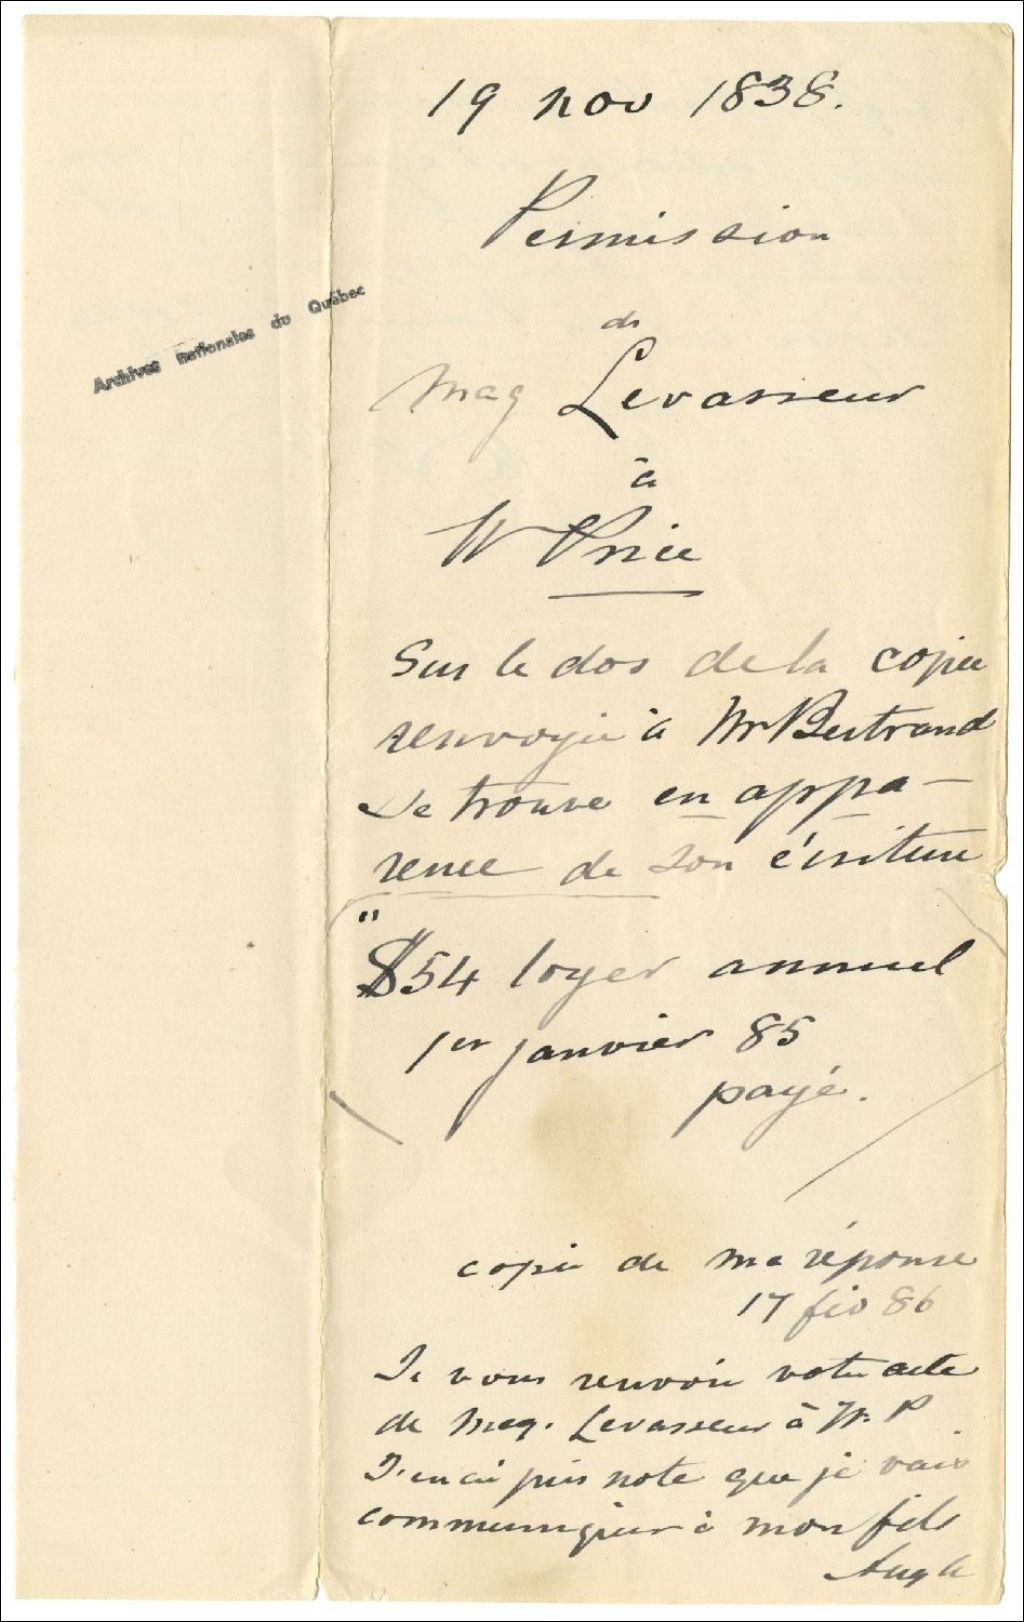 19 nov 1838.
Permission
de
Archives nationales du Québec
Mag Levasseur
à
W Price
Sur le dos de la copie
renvoyée à Mr Bertrand
se trouve en appa-
rence de son écriture
"$54 loyer annuel
1er janvier 85
payé.
copie de ma réponse
17 fév 86
Je vous renvoie votre acte
de Mag. Levasseur à W. P
J'en ai pris note que je vais
communiquer à mon fils